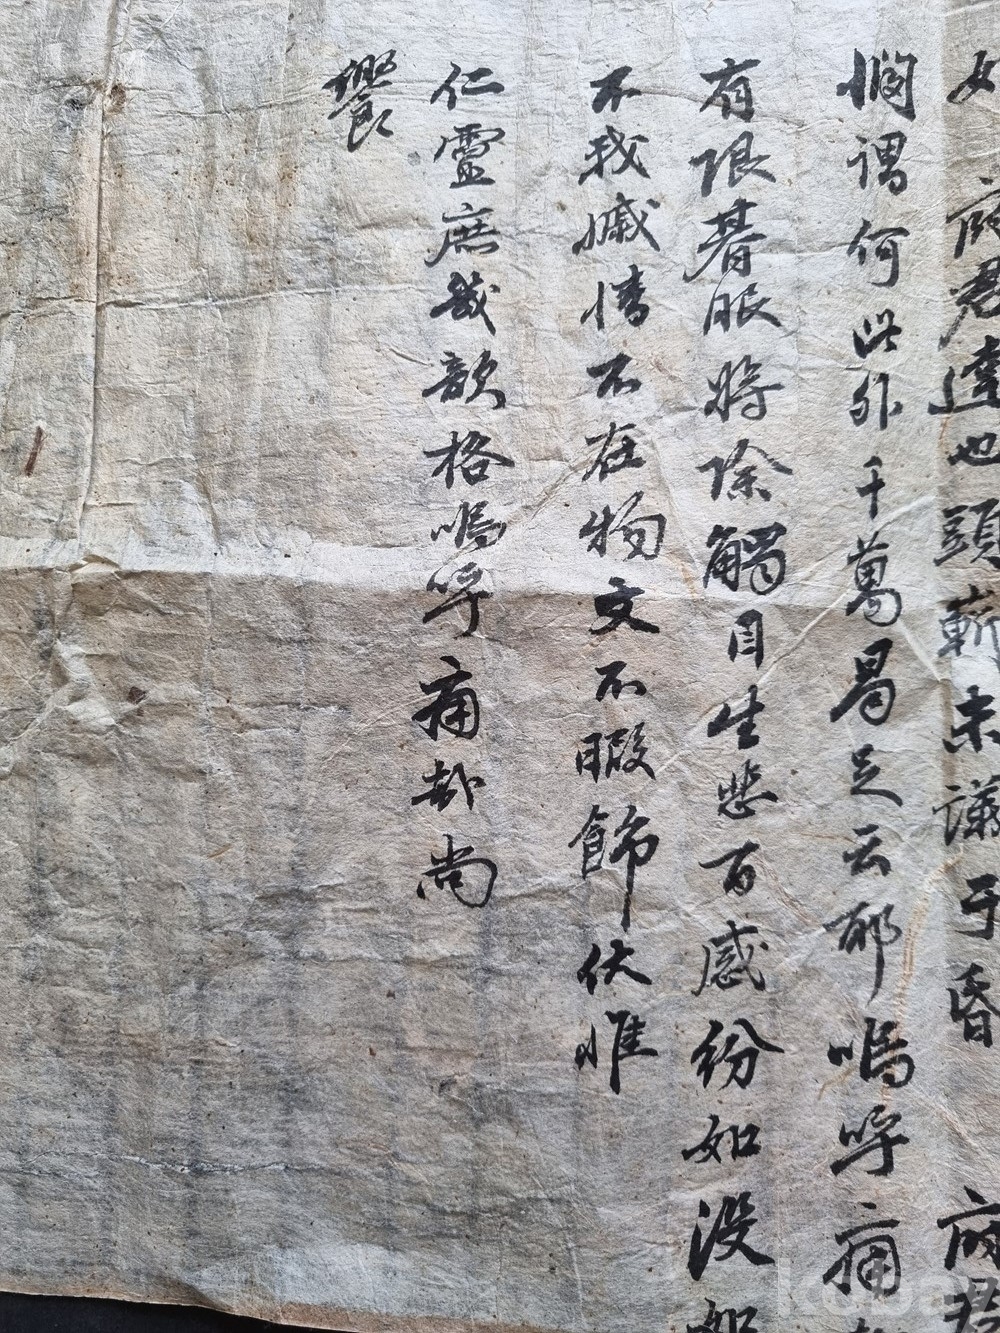 府君達也頭蔪未議于昏 府君
憫謂何此外千萬曷足云耶嗚呼痛
有限朞服將除觸目生悲百感紛如沒如
不我嫌情不在物文不暇飾伏惟
仁靈庶幾歆格嗚呼痛哉尚
饗